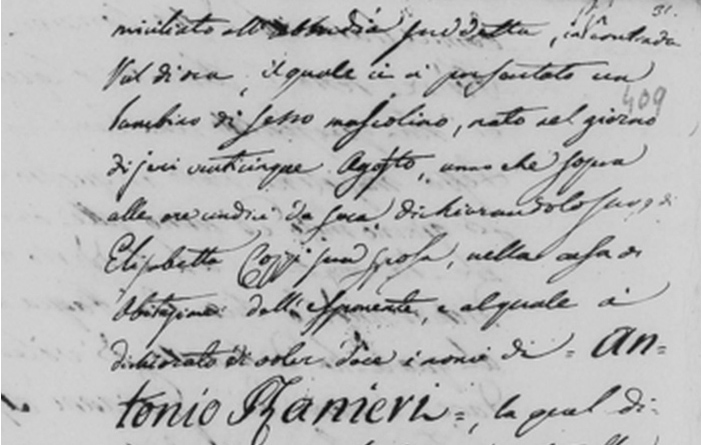 31.
miciliato all'abbadia suddetta, in Contrada
Val di rea, il quale ci à presentato un
409
bambino di sesso mascolino, nato nel giorno
di jeri venticinque Agosto, anno che sopra
alle ore undici da sera, dichiarandolo suo, e di
Elisabetta Cozzi sua sposa, nella casa di
abitazione dell'esponente, e al quale à
dichiarato di voler dare i nomi di = An=
tonio Ranieri =, la qual di=